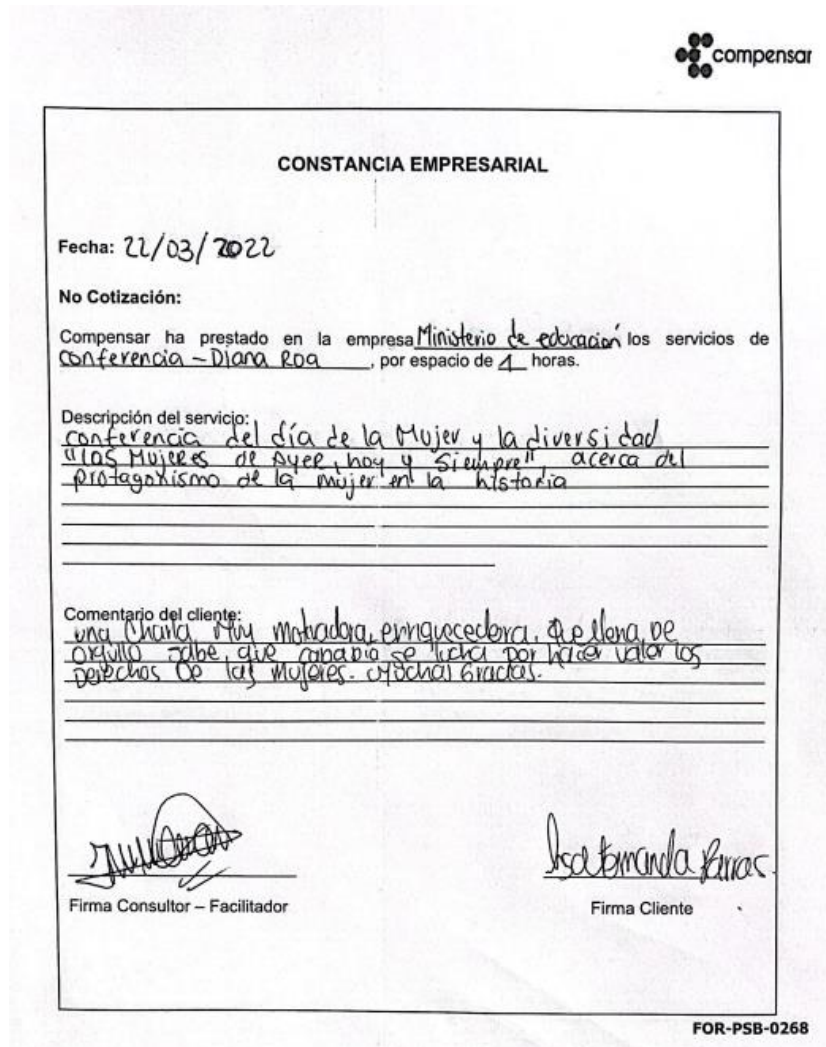 compensar
CONSTANCIA EMPRESARIAL
Fecha: 22/03/2022
No Cotización:
Compensar ha prestado en la empresa Ministerio de educación los servicios de
conferencia - Diana Roa, por espacio de 1 horas.
Descripción del servicio:
conferencia del día de la Mujer y la diversidad
"las Mujeres de Ayer, hoy y Siempre", acerca del
protagonismo de la mujer en la historia
Comentario del cliente:
una Charla Muy motivadora, enriquecedora, que llena De
orgullo que se lucha por hacer valer los
Derechos De las mujeres. Muchas Gracias.
Firma Consultor – Facilitador
Firma Cliente
FOR-PSB-0268